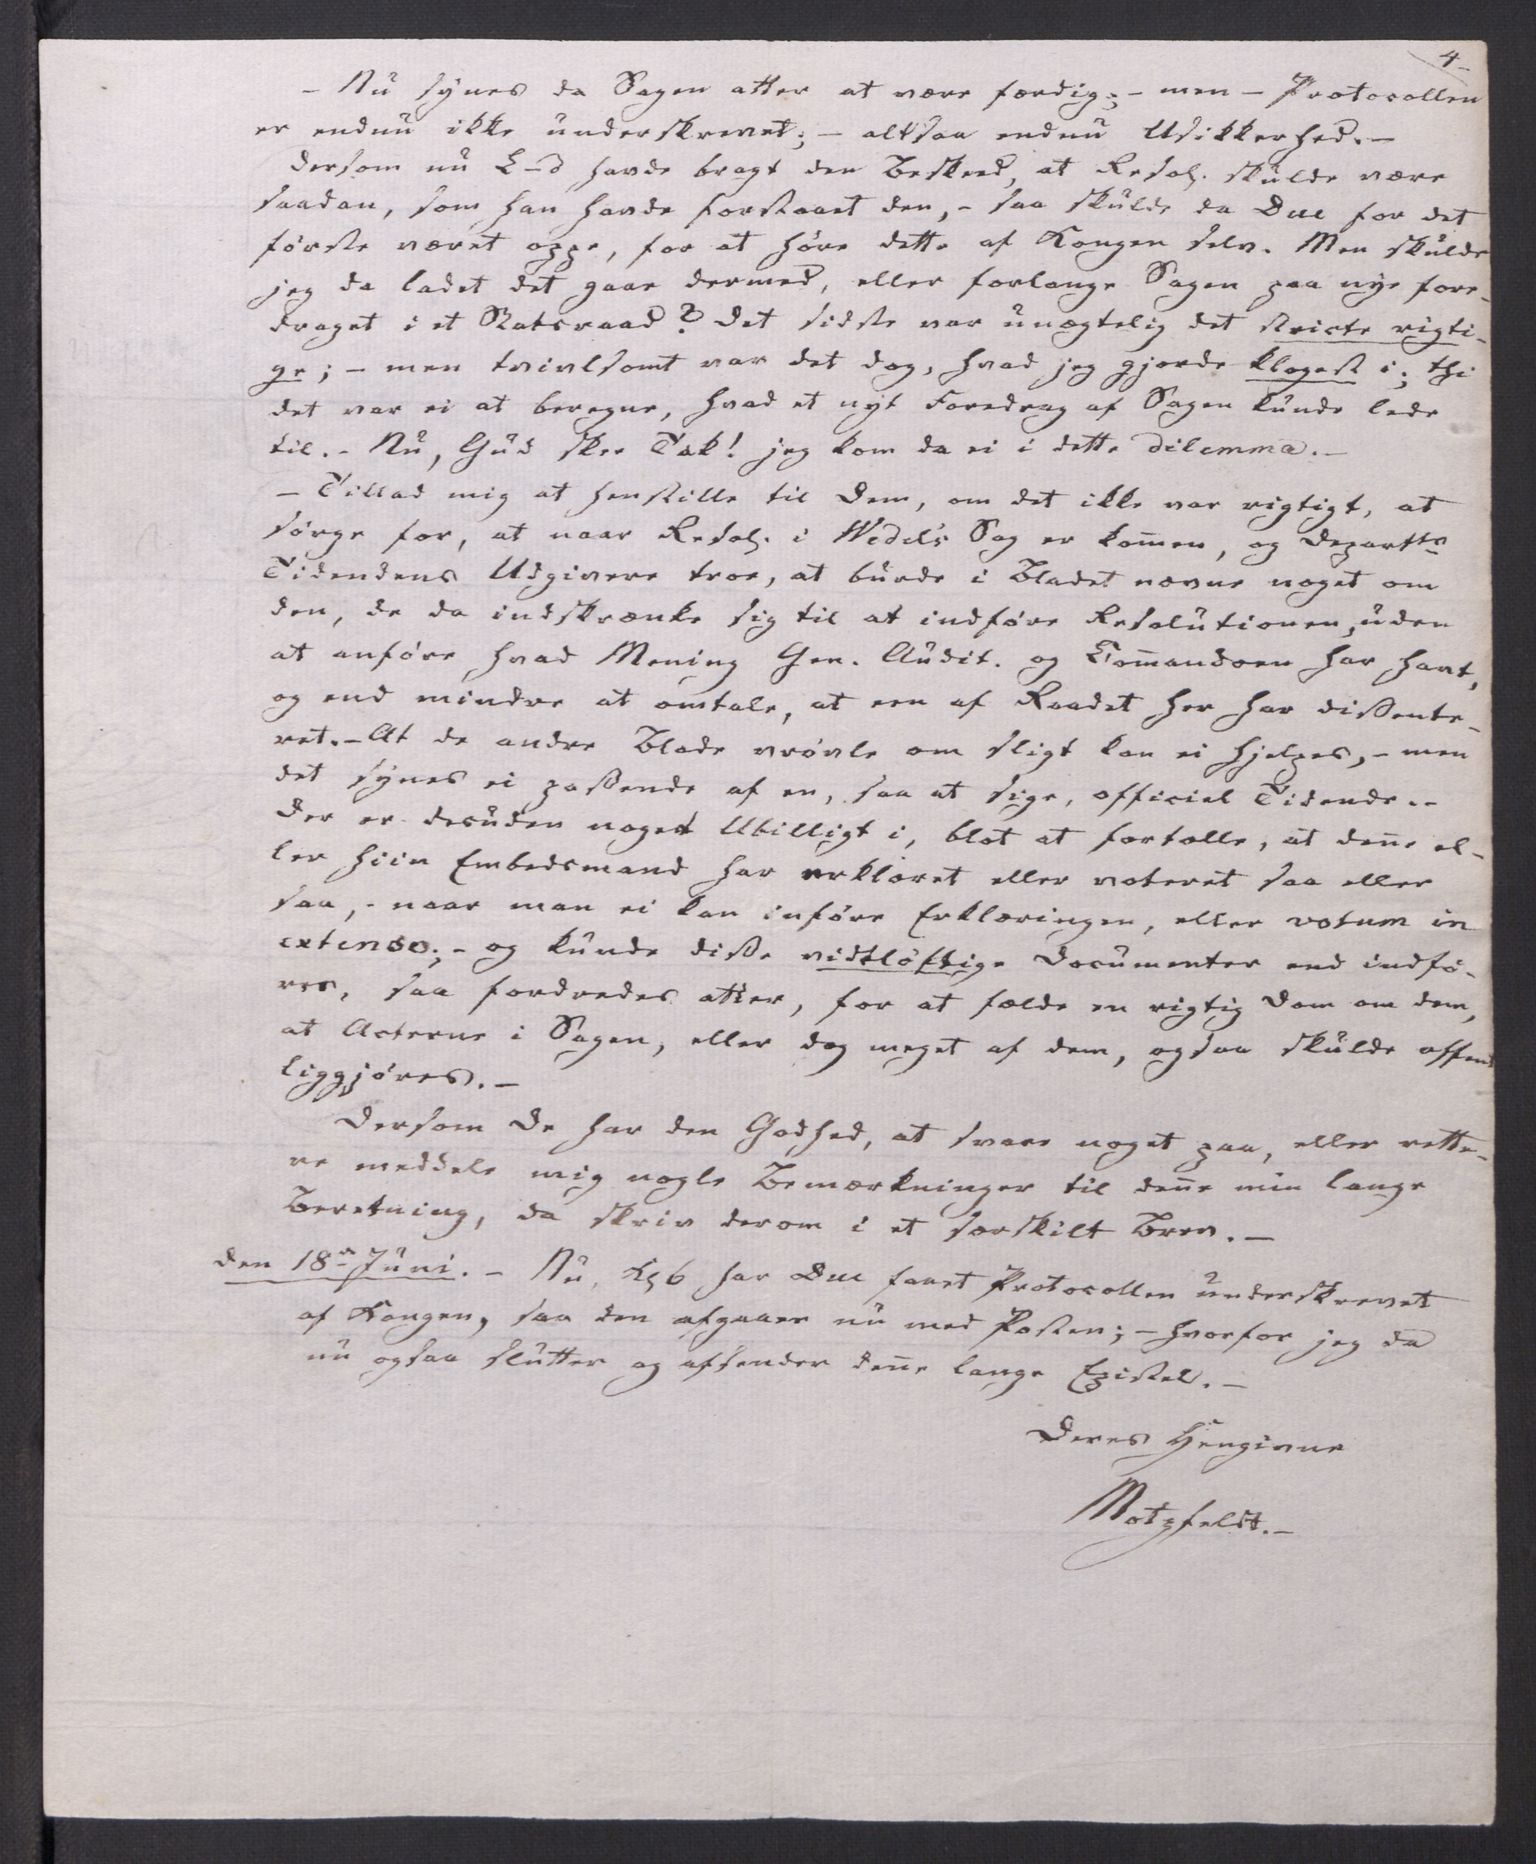 4-
- Nu synes da Sagen atter at være færdig; - men - Protocollen
er endnu ikke underskrevet; - altsaa endnu Usikkerhed. -
Dersom nu L-d havde bragt den Beskeed, at Resol. skulde være
saadan, som han havde forstaaet den, - saa skulde da Due for det
første været oppe, for at høre dette af Kongen selv. Men skulde
jeg da ladet det gaae dermed, eller forlange Sagen paa nye fore-
draget i et Statsraad? Det sidste var unægtelig det stricte rigti-
ge; - men tvivlsomt var det dog, hvad jeg gjorde klogest i; thi
det var ei at beregne, hvad et nyt Foredrag af Sagen kunde lede
til. - Nu, Gud skee Tak! jeg kom da ei i dette dilemma. -
- Tillad mig at henstille til Dem, om det ikke var rigtigt, at
sørge for, at naar Resol. i Wedels Sag er kommen, og Departts
Tidendens Udgivere troe, at burde i Bladet nævne noget om
den, de da indskrænke sig til at indføre Resolutionen, uden
at anføre hvad Mening Gen. Audit. og Com̄andoen har havt,
og end mindre at omtale, at een af Raadet her har dissente-
ret. - At de andre Blade vrøvle om sligt kan ei hjelpes, - men
det synes ei passende af en, saa at sige, official Tidende. -
Der er desuden noget Ubilligt i, blot at fortælle, at den̄e el-
ler hiin Embedsmand har erklæret eller voteret saa eller
saa, - naar man ei kan inføre Erklæringen, eller votum in
extenso; - og kunde disse vidtløftige Documenter end indfø-
res, saa fordredes atter, for at fælde en rigtig Dom om dem,
at Acterne i Sagen, eller dog meget af dem, ogsaa skulde offent
liggjøres. -
Dersom De har den Godhed, at svare noget paa, eller rette-
re meddele mig nogle Bemærkninger til den̄e min lange
Beretning, da skriv derom i et særskilt Brev. -
den 18n Juni. - Nu, Kl 6 har Due faaet Protocollen underskrevet
af Kongen, saa den afgaaer nu med Posten; - hvorfor jeg da
nu ogsaa slutter og afsender den̄e lange Epistel. -
Deres Hengivne
Motzfeldt. -